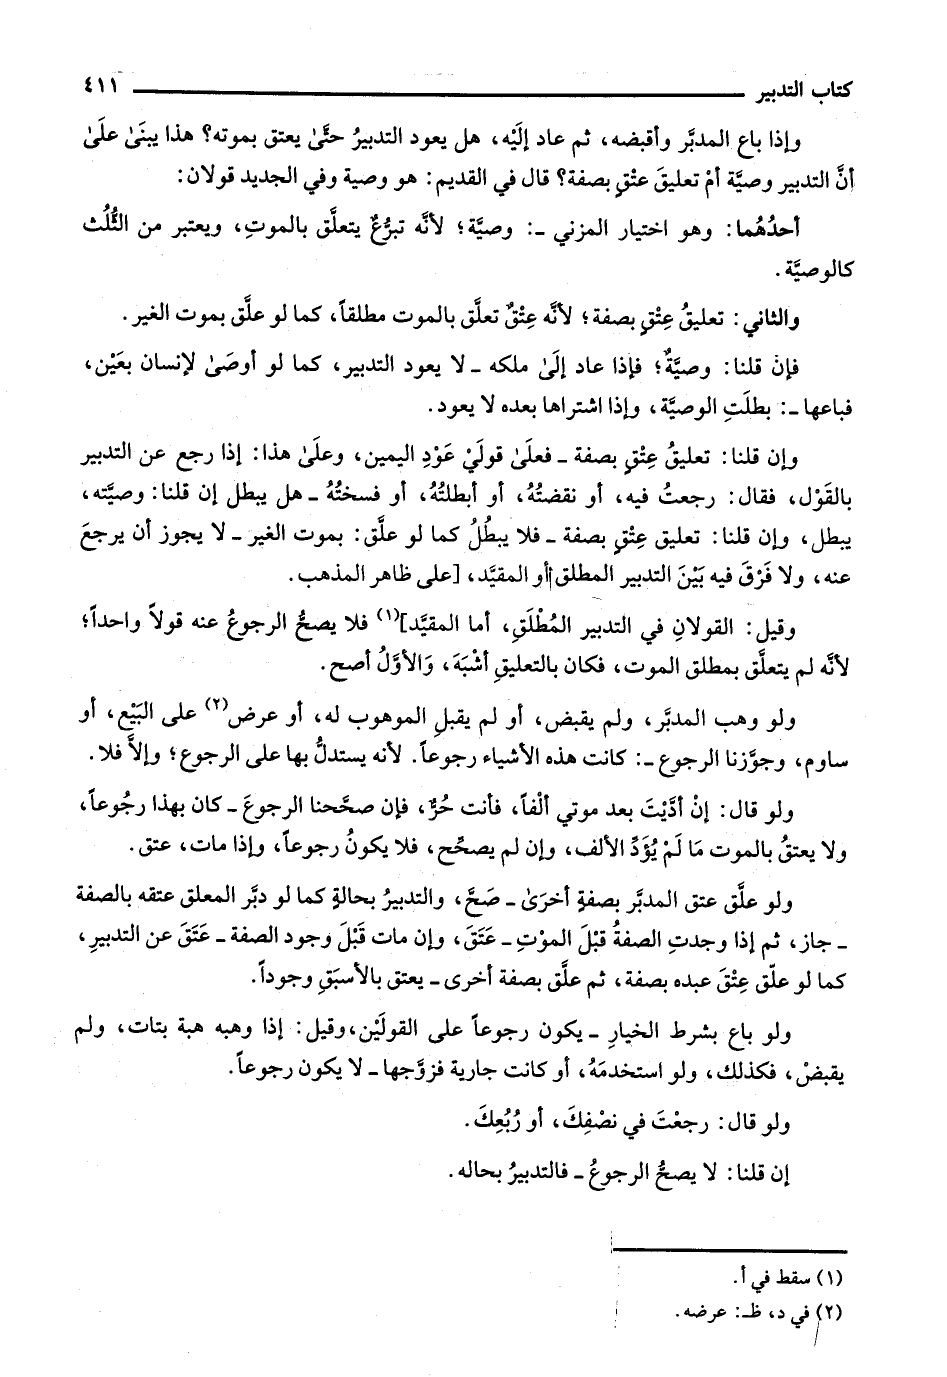 كتاب التدبير ٤١١
وإذا باع المدبَّر وأقبضه، ثم عاد إلَيْه، هل يعود التدبيرُ حتَّىٰ يعتق بموته؟ هذا يبنَىٰ علَىٰ
أنَّ التدبير وصيَّة أمْ تعليقَ عتْقٍ بصفة؟ قال في القديم: هو وصية وفي الجديد قولان:
أحدُهُما: وهو اختيار المزني -: وصيَّة؛ لأنَّه تبرُّعٌ يتعلَّق بالموتِ، ويعتبر من الثُّلُث
كالوصيَّة.
والثاني: تعليقُ عِتْقٍ بصفة؛ لأنَّه عِتْقٌ تعلَّق بالموت مطلقاً، كما لو علَّق بموت الغير.
فإن قلنا: وصيَّةٌ؛ فإذا عاد إلَىٰ ملكه - لا يعود التدبير، كما لو أوصَىٰ لإنسان بعَيْن،
فباعها -: بطلَتِ الوصيَّة، وإذا اشتراها بعده لا يعود.
وإن قلنا: تعليقُ عِتْقٍ بصفة - فعلَىٰ قولَيْ عَوْدِ اليمين، وعلَىٰ هذا: إذا رجع عن التدبير
بالقَوْل، فقال: رجعتُ فيه، أو نقضتُهُ، أو أبطلتُهُ، أو فسختُهُ - هل يبطل إن قلنا: وصيَّته،
يبطل، وإن قلنا: تعليق عِتْقٍ بصفة - فلا يبطُلُ كما لو علَّق: بموت الغير - لا يجوز أن يرجعَ
عنه، ولا فَرْقَ فيه بَيْنَ التدبير المطلق أو المقيَّد، [على ظاهر المذهب.
وقيل: القولانِ في التدبير المُطْلَقِ، أما المقيَّد](١) فلا يصحُّ الرجوعُ عنه قولاً واحداً؛
لأنَّه لم يتعلَّق بمطلق الموت، فكان بالتعليقِ أشْبَهَ، وَالأوَّلُ أصح.
ولو وهب المدبَّر، ولم يقبض، أو لم يقبلِ الموهوب له، أو عرض(٢) على البَيْع، أو
ساوم، وجوَّزنا الرجوع -: كانت هذه الأشياء رجوعاً. لأنه يستدلُّ بها على الرجوع؛ وإلاَّ فلا.
ولو قال: إنْ أدَّيْتَ بعد موتي ألْفاً، فأنت حُرٌّ، فإن صحَّحنا الرجوعَ - كان بهذا رجُوعاً،
ولا يعتقُ بالموت مَا لَمْ يُؤَدِّ الألف، وإن لم يصحِّح، فلا يكونُ رجوعاً، وإذا مات، عتق.
ولو علَّق عتق المدبَّر بصفةٍ أخرَىٰ - صَحَّ، والتدبيرُ بحالةٍ كما لو دبَّر المعلق عتقه بالصفة
- جاز، ثم إذا وجدتِ الصفةُ قبْلَ الموْتِ - عَتَقَ، وإن مات قَبْلَ وجود الصفة - عَتَقَ عن التدبيرِ،
كما لو علّق عِتْقَ عبده بصفة، ثم علَّق بصفة أخرى - يعتق بالأسبَقِ وجوداً.
ولو باع بشرط الخيارِ - يكون رجوعاً على القولَيْن، وقيل: إذا وهبه هبة بتات، ولم
يقبضْ، فكذلك، ولو استخدمَهُ، أو كانت جارية فزوَّجها - لا يكون رجوعاً.
ولو قال: رجعْتَ في نصْفِكَ، أو رُبُعِكَ.
إن قلنا: لا يصحُّ الرجوعُ - فالتدبيرُ بحاله.
(١) سقط في أ.
(٢) في د، ظـ: عرضه.